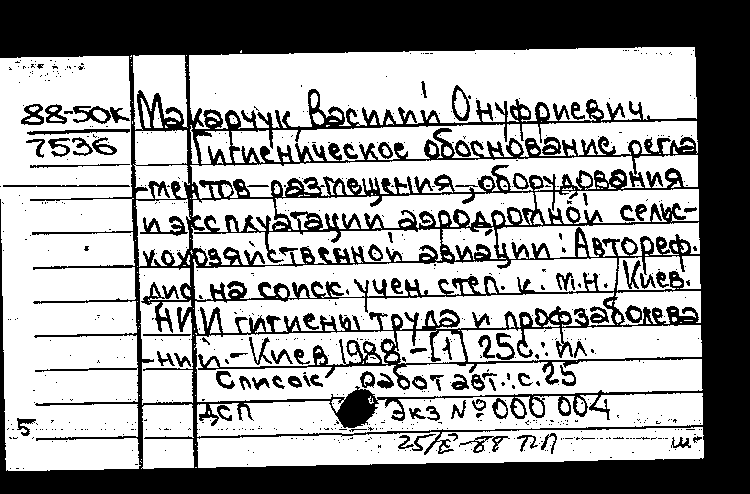 88-50К Макарчук Василий Онуфриевич.
7536 Гигиеническое обоснование регла
-ментов размещения, оборудования
и эксплуатации аэродромной сельс-
кохозяйственной авиации: Автореф.
дис. на соиск. учен. степ. к. м.н./Киев.
НИИ гигиены труда и профзаболева
-ний.-Киев 1988.-[1] 25с.: ил.
Список работ авт.: с.25
ДСП Экз №000 004
5
25/ -88 ПЛ ш